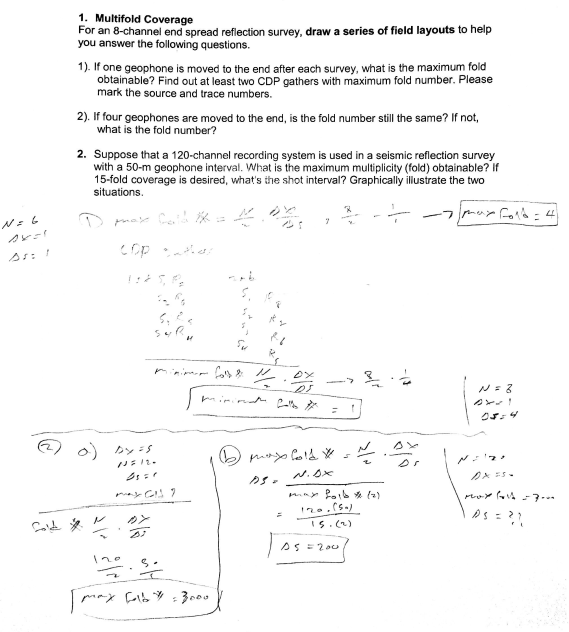 1. Multifold Coverage
For an 8-channel end spread reflection survey, draw a series of field layouts to help
you answer the following questions.
1). If one geophone is moved to the end after each survey, what is the maximum fold
obtainable? Find out at least two CDP gathers with maximum fold number. Please
mark the source and trace numbers.
2). If four geophones are moved to the end, is the fold number still the same? If not,
what is the fold number?
2. Suppose that a 120-channel recording system is used in a seismic reflection survey
with a 50-m geophone interval. What is the maximum multiplicity (fold) obtainable? If
15-fold coverage is desired, what's the shot interval? Graphically illustrate the two
situations.
① max fold # = N/2 · ΔX/ΔS , 8/2 · 1/1 → max fold = 4
ΔX=1
ΔS= 1
CDP
S1
S2
S4
fold # N/2 · ΔX/ΔS → 8/2 · 1/4
fold # = 1
N = 8
ΔX=1
ΔS=4
② a)
N=120
fold # N/2 · ΔX/ΔS
120/2 · 50/1
max fold # = 3000
b) max fold # = N/2 · ΔX/ΔS
ΔS = N·ΔX / max fold # (2)
= 120·(50) / 15·(2)
ΔS = 200
N=120
ΔX=50
max fold = 3000
ΔS = ??